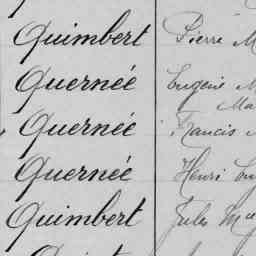 Quimbert Pierre M
Quernée Eugène M
Ma
Quernée Francis
Quernée Henri
Quimbert Jules